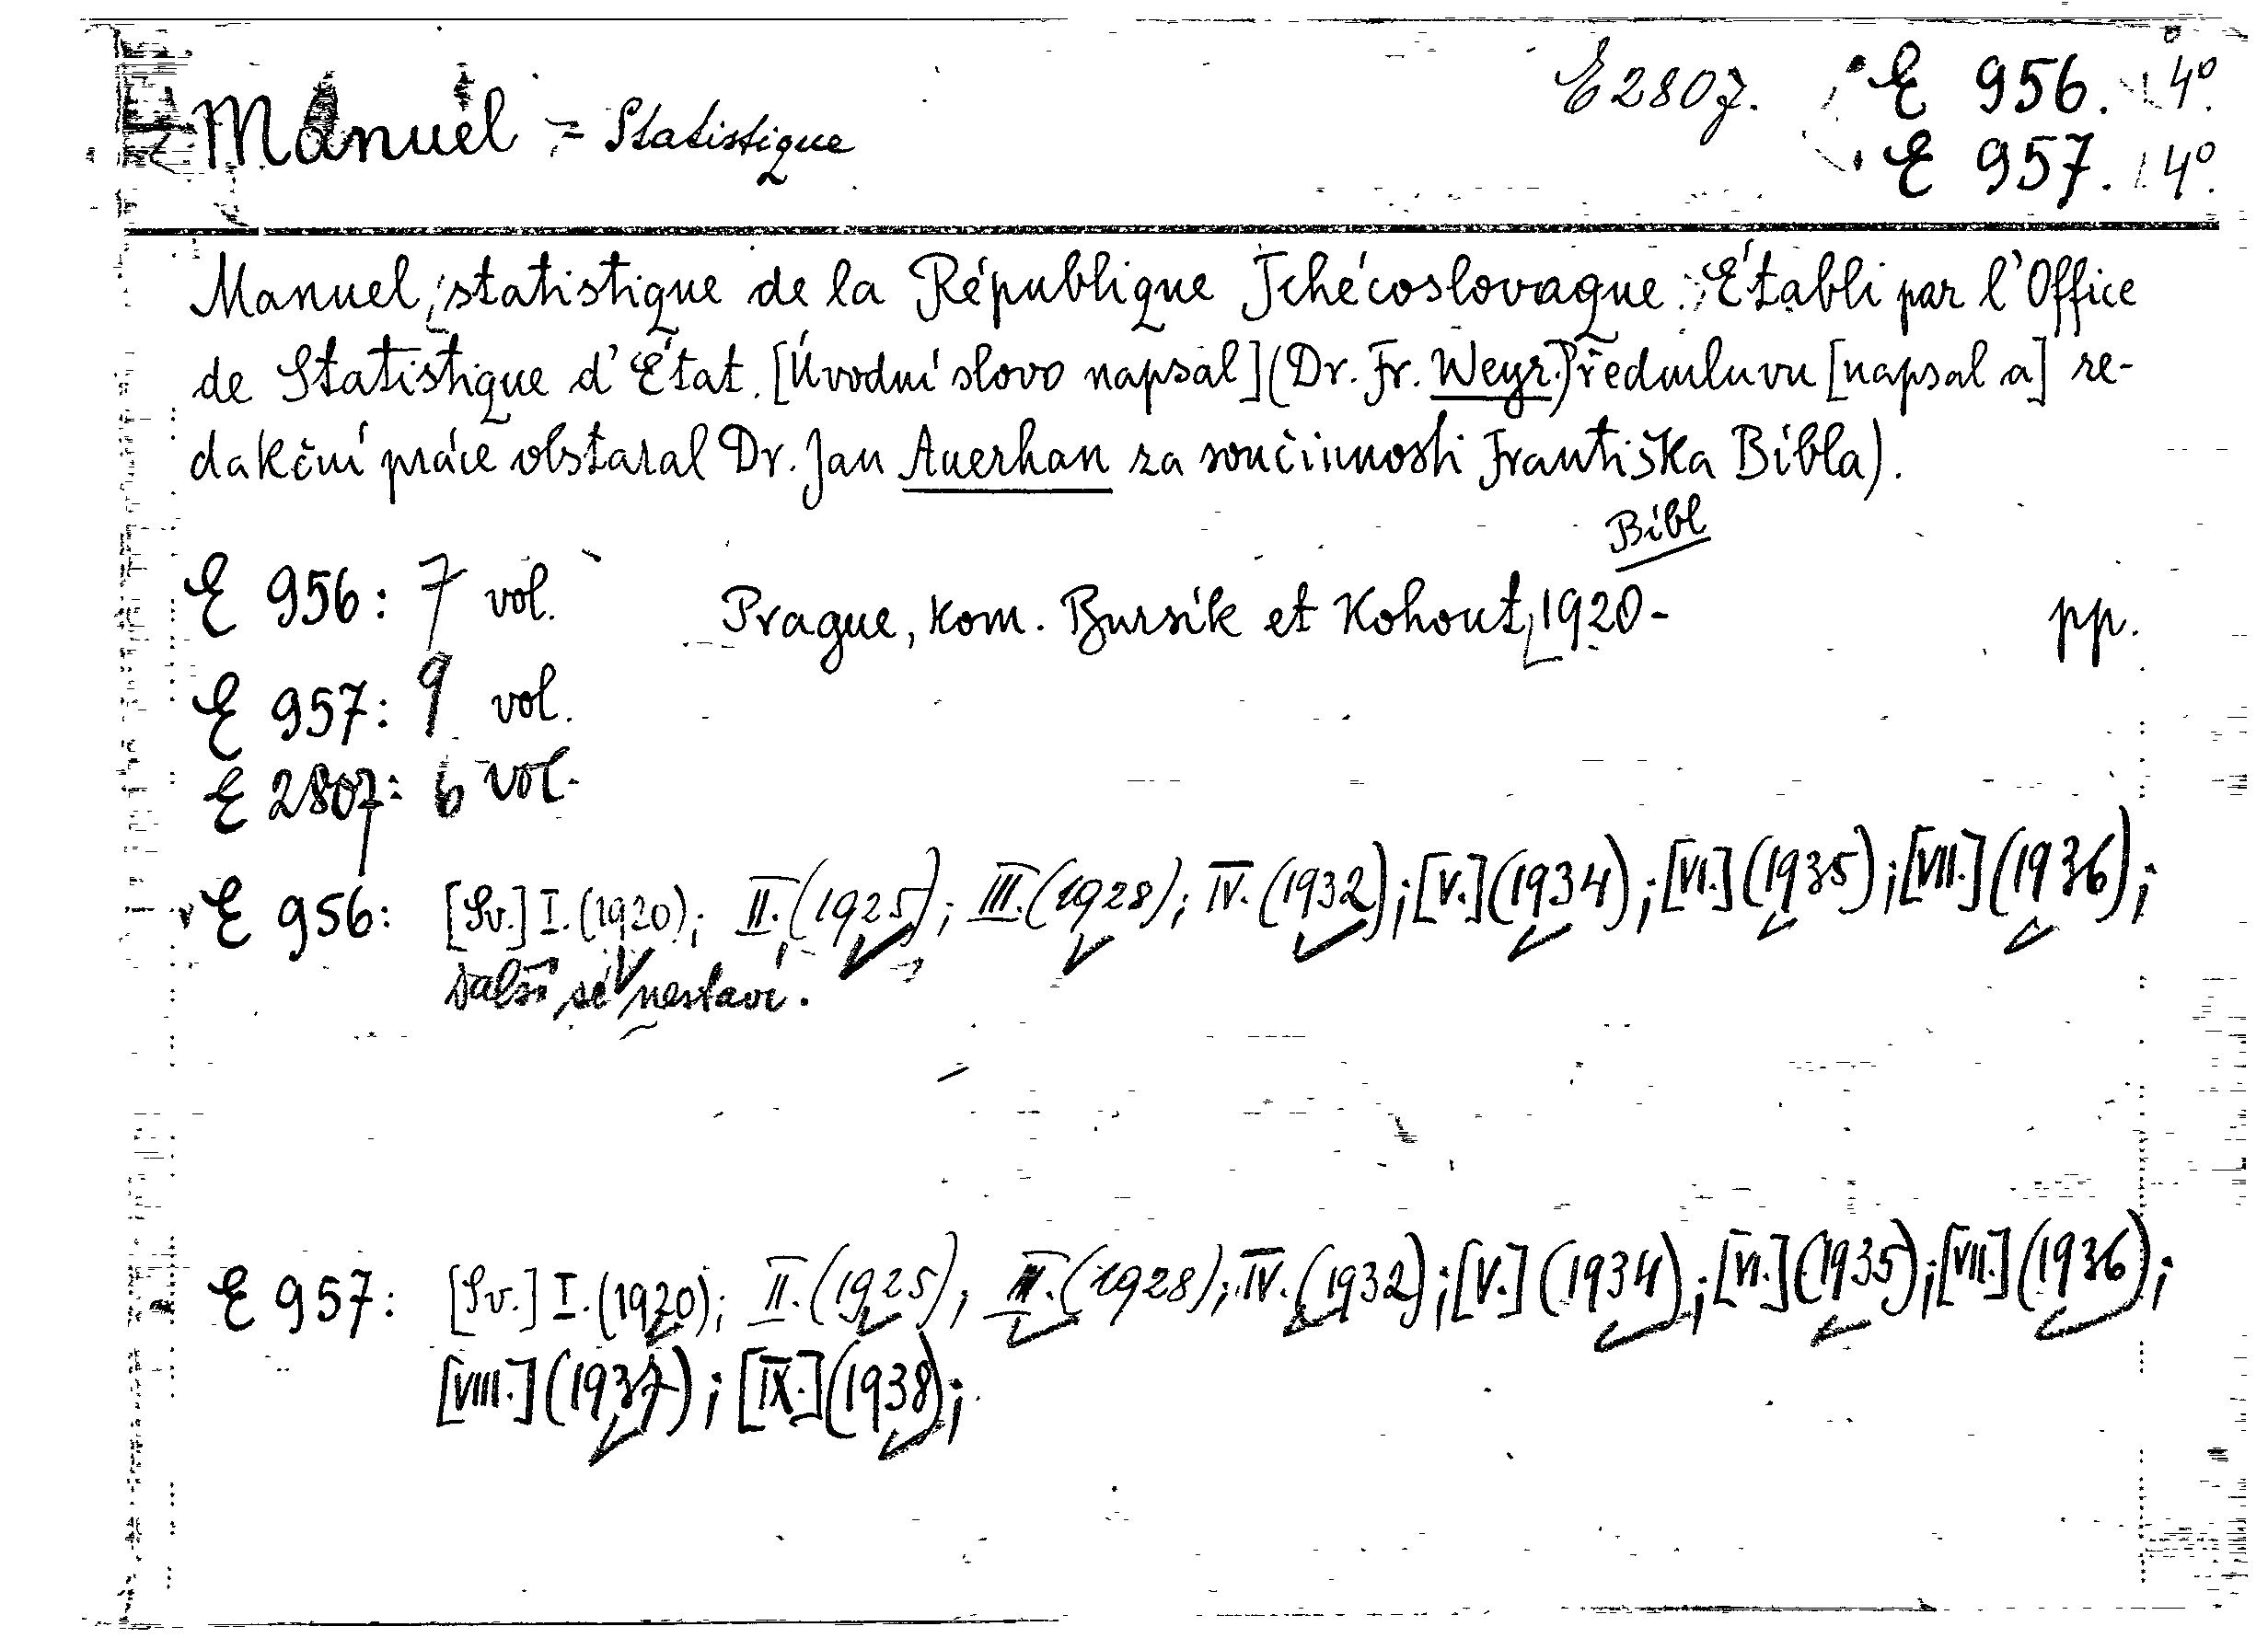 Manuel = Statistique
E 2807. E 956. 4°.
E 957. 4°.
Manuel statistique de la République Tchécoslovaque. Établi par l'Office
de Statistique d'État. [Úvodní slovo napsal] (Dr. Fr. Weyr. Předmluvu [napsal a] re-
dakční práce obstaral Dr. Jan Auerhan za součinnosti Františka Bíbla).
Bíbl
E 956: 7 vol. Prague, kom. Bursík et Kohout, 1920- pp.
E 957: 9 vol.
E 2807: 6 vol.
E 956: [Sv.] I. (1920); II. (1925); III. (1928); IV. (1932); [V.] (1934); [VI.] (1935); [VII.] (1936);
Další se nestaví.
E 957: [Sv.] I. (1920); II. (1925); III. (1928); IV. (1932); [V.] (1934); [VI.] (1935); [VII.] (1936);
[VIII.] (1937); [IX.] (1938);